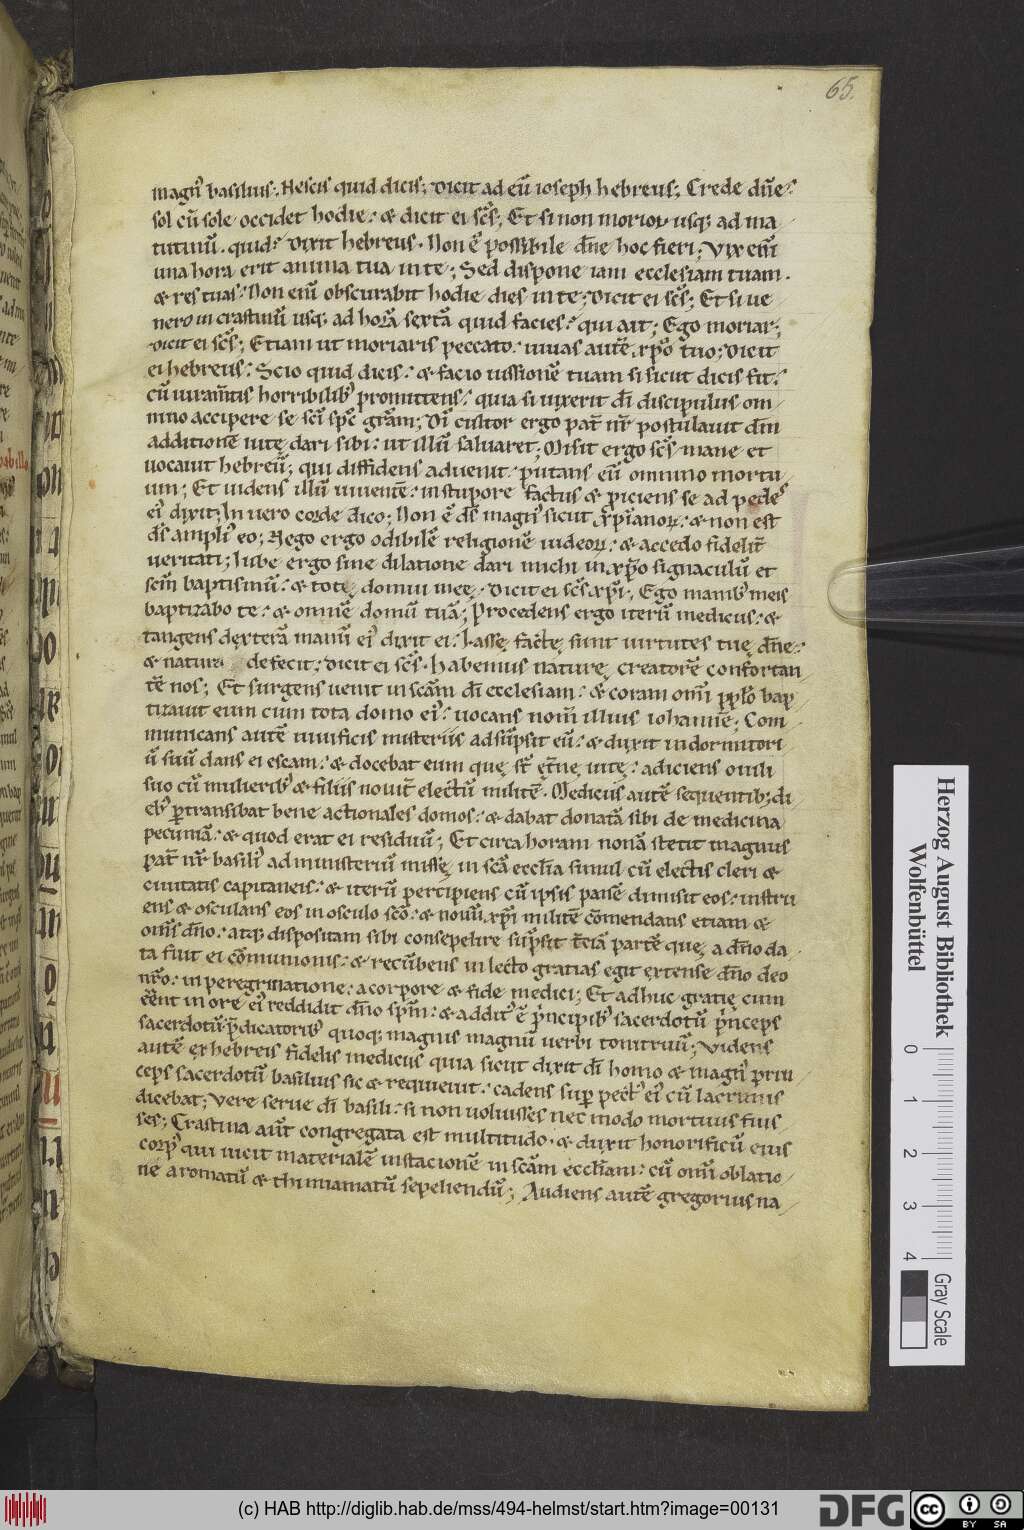 65.
magn᷒ basilius; Nescis quid dicis; Dicit ad eū ioseph hebreus; Crede dn̄e;
sol cū sole occidet hodie; & dicit ei sc̄s; Et si non morior usq; ad ma
tutinū. quid? Dixit hebreus. Non ē possibile dn̄e hoc fieri; Vix enī
una hora erit anima tua in te; Sed dispone iam ecclesiam tuam.
& res tuas; Non enī obscurabit hodie dies in te; Dicit ei sc̄s; Et si ue
nero in crastinū usq; ad horā sextā quid facies? qui ait; Ego moriar;
Dicit ei sc̄s; Etiam ut moriaris peccato. uiuas autē xp̄o tuo; Dicit
ei hebreus; Scio quid dicis; & facio iussionē tuam si sicut dicis fit;
cū iuram̄tis horribilib᷒ promittens; quia si uixerit dī discipulus om
nino accipere se sc̄i sp̄c grām; Dī cultor ergo pat̄ nr̄ postulauit dm̄
additionē uitę dari sibi; ut illū saluaret; Misit ergo sc̄s mane et
uocauit hebreū; qui diffidens aduenit. putans eū omnino mortu
um; Et uidens illū uiuentē; in stupore factus & p̄iciens se ad pedes
ei᷒ dixit; In uero corde dico; Non ē ds̄ magn᷒ sicut xp̄ianoꝝ; & non est
ds̄ ampli᷒ eo; Nego ergo odibilē religionē iudeoꝝ; & accedo fidelit̄
ueritati; Iube ergo sine dilatione dari michi in xp̄o signaculū et
sc̄m baptismū; & totę domui meę. Dicit ei sc̄s xp̄i. Ego manib᷒ meis
baptizabo te; & omnē domū tuā; Procedens ergo iterū medicus; &
tangens dexterā manū ei᷒ dixit ei; Lassę factę sunt uirtutes tuę dn̄e;
& natura defecit; Dicit ei sc̄s. habemus naturę creatorē confortan
tē nos; Et surgens uenit in sc̄am dī ecclesiam; & coram omī pp̄lo bap
tizauit eum cum tota domo ei᷒; uocans nom̄ illius iohannē; Com
municans autē uiuificis misteriis adsūpsit eū; & duxit in dormitori
ū suū dans ei escam; & docebat eum que st̄ ęt̄nę uitę; adiciens ouili
suo cū mulierib᷒ & filiis nouit̄ electū militē. Medicus autē sequentib; di
eb᷒ ꝑtransibat bene actionales domos; & dabat donatā sibi de medicina
pecuniā; & quod erat ei residuū; Et circa horam nonā stetit magnus
pat̄ nr̄ basili᷒ ad ministeriū missę in sc̄a eccl̄ia simul cū electis cleri &
ciuitatis capitaneis; & iterū percipiens cū ipsis panē dimisit eos; instru
ens & osculans eos in osculo sc̄o; & nouū xp̄i militē cōmendans etiam &
om̄s dn̄o; atq; dispositam sibi consepelire sūpsit t̄ciā partē que a dn̄o da
ta fuit ei cōmunionis; & recūbens in lecto gratias egit extense dn̄o deo
nr̄o; in peregrinatione; a corpore & fide medici; Et adhuc gratię cum
eēnt in ore ei᷒ reddidit dn̄o sp̄m; & addit᷒ ē p̄ncipib᷒ sacerdotū p̄nceps
sacerdotū p̄dicatorib᷒ quoq; magnis magnū uerbi tonitruū; Videns
autē ex hebreis fidelis medicus quia sicut dixit dī homo & magn᷒ prin
ceps sacerdotū basilius sic & requieuit; cadens suꝑ pect᷒ ei᷒ cū lacrimis
dicebat; Vere serue dī basili; si non uoluisses nec modo mortuus fuis
ses; Crastina aūt congregata est multitudo. & duxit honorificū eius
corp᷒ qui uicit materialē instacionē in sc̄am eccl̄iam; cū omī oblatio
ne aromatū & thimiamatū sepeliendū; Audiens autē gregorius na
Herzog August Bibliothek
Wolfenbüttel
0 1 2 3 4
Gray Scale
(c) HAB http://diglib.hab.de/mss/494-helmst/start.htm?image=00131
DFG
cc BY SA